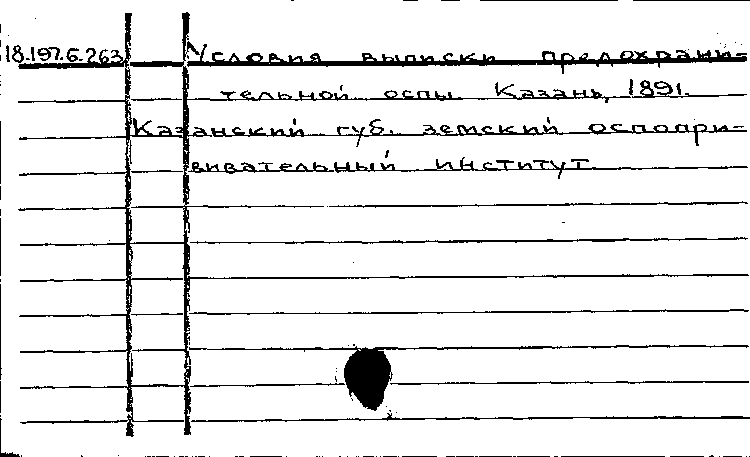 18.197.6.263 Условия выписки предохрани-
тельной оспы. Казань, 1891.
Казанский губ. земский оспопри-
вивательный институт.